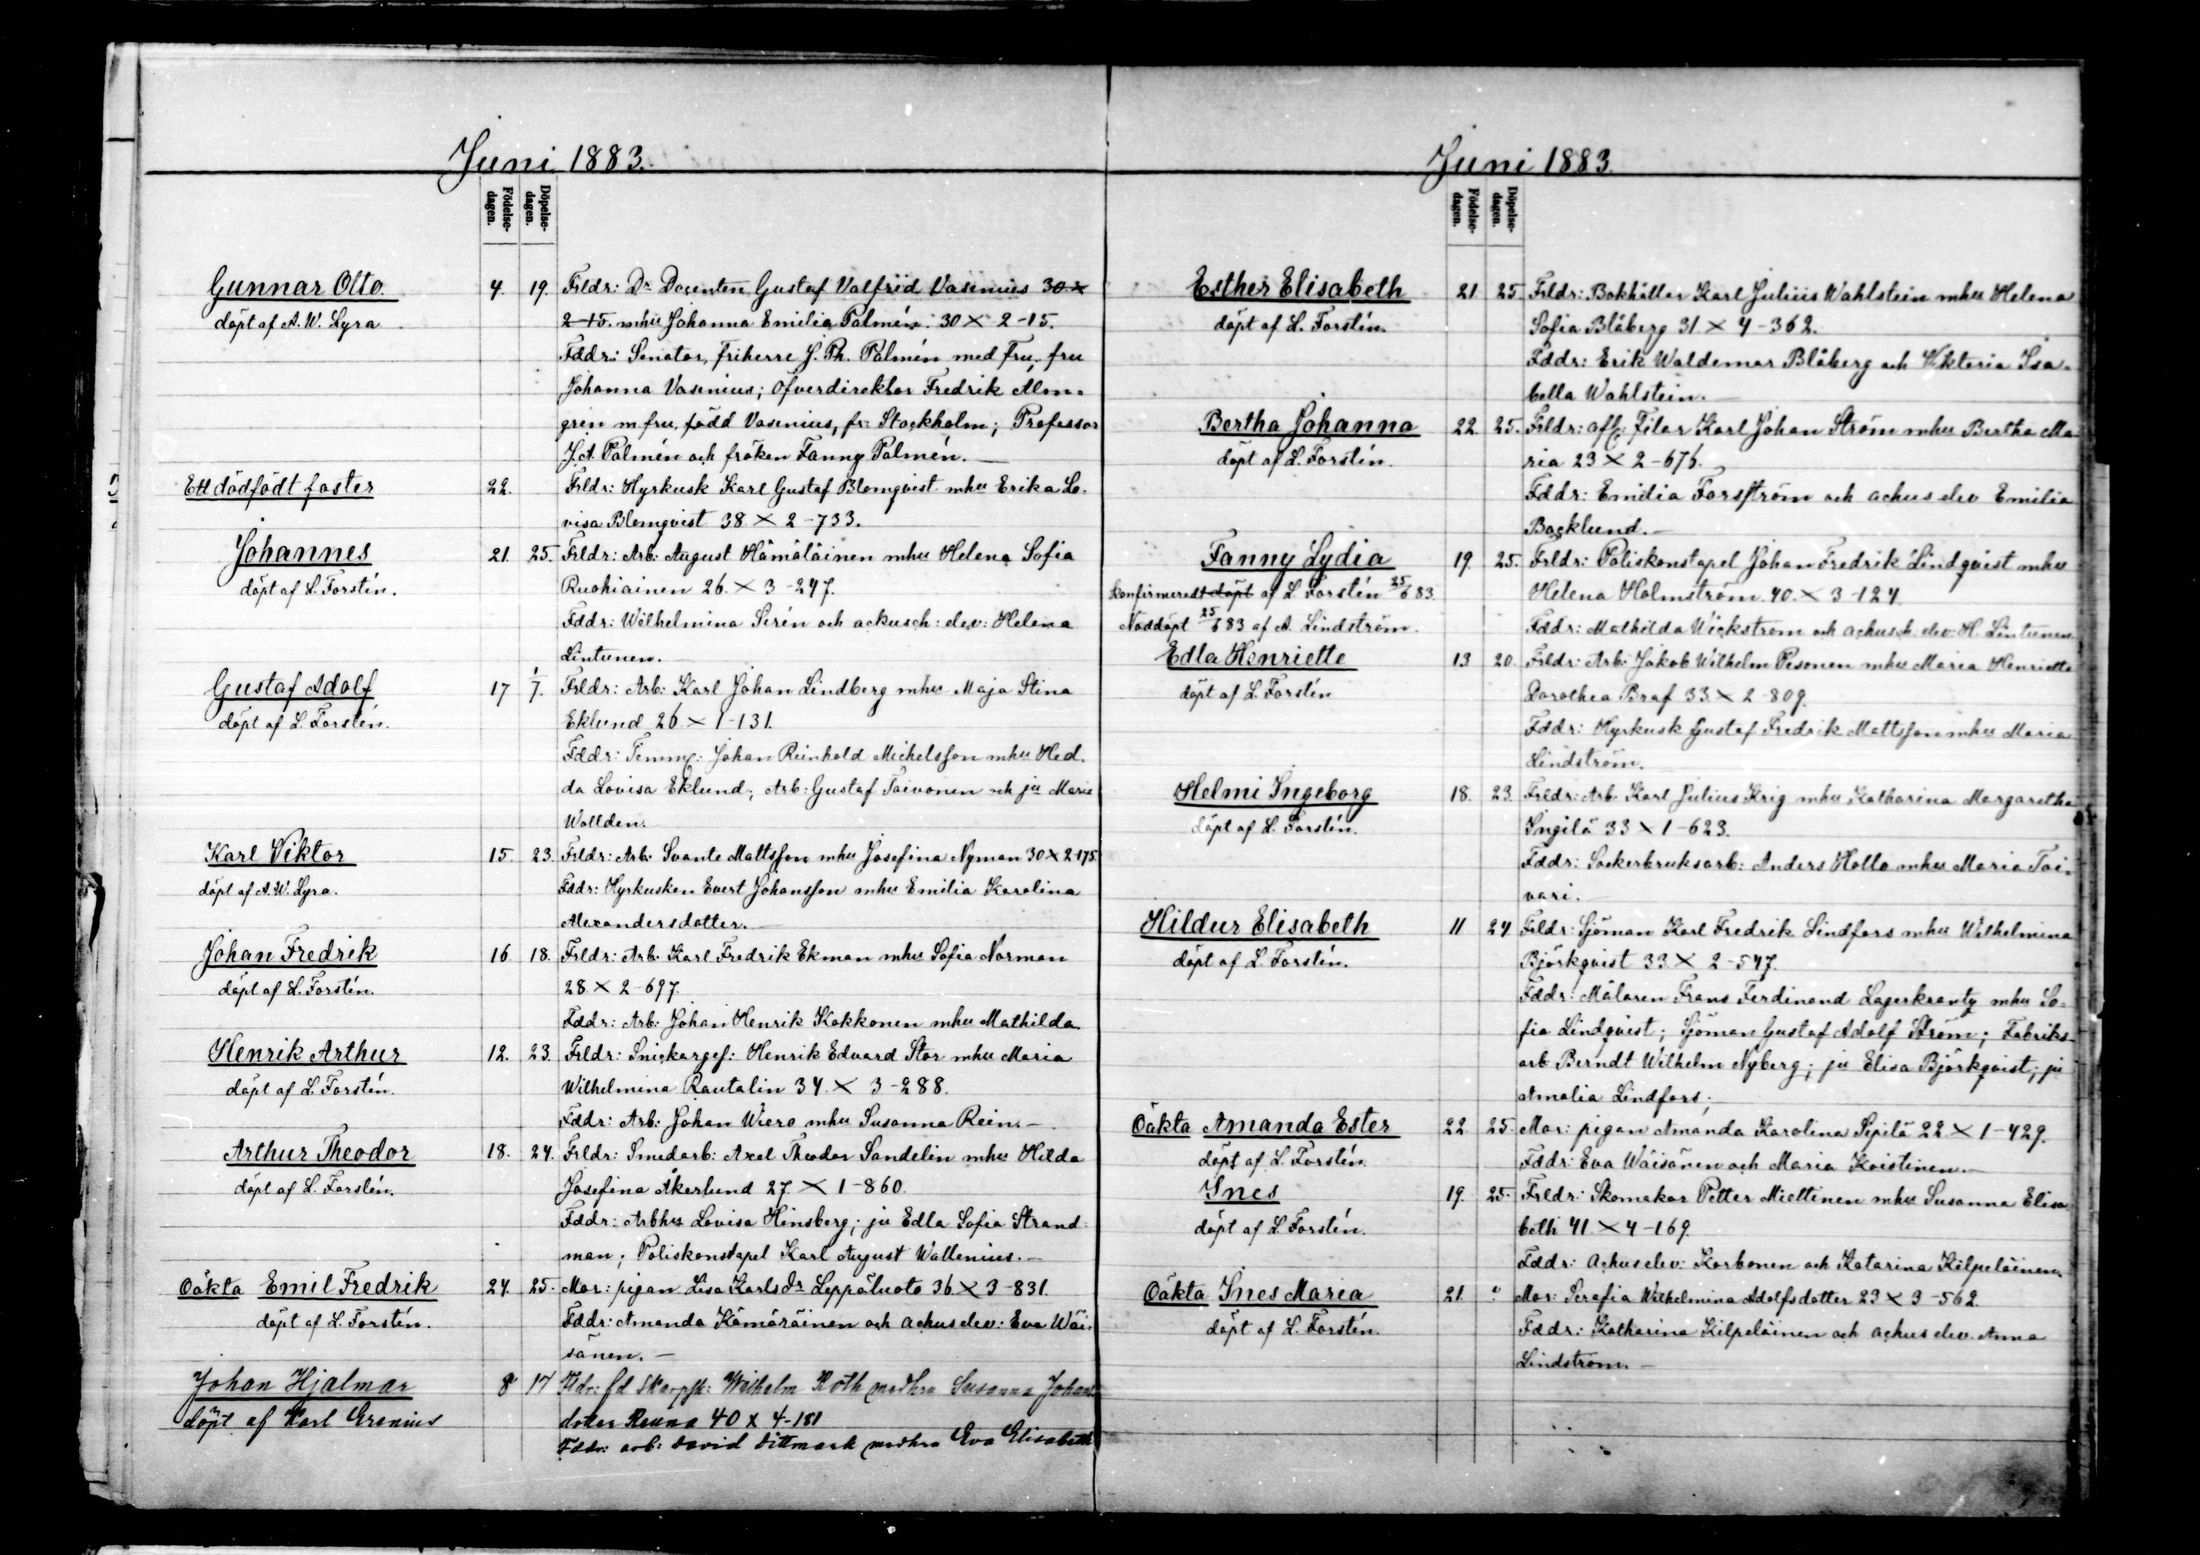 Juni 1883.
Födelse-
dagen.
Döpelse-
dagen.
Gunnar Otto.
döpt af A. W. Lyra
4. 19. Frldr: Dr Docenten Gustaf Valfrid Vasenius 30 x
2-15. mhu Johanna Emilia Palmén. 30 X 2-15.
Fddr: Senator, Friherre J. Ph. Palmén med Fru, fru
Johanna Vasenius; Öfverdirektor Fredrik Alm-
gren m fru, född Vasenius, fr: Stockholm; Professor
J. A. Palmén och fröken Fanny Palmén.
Ett dödfödt foster
22. Frldr: Hyrkusk Karl Gustaf Blomqvist mhu Erika Lo-
visa Blomqvist 38 X 2-733.
Johannes
döpt af L. Forstén.
21. 25. Frldr: Arb: August Hämäläinen mhu Helena Sofia
Ruohiainen 26. X 3-247.
Fddr: Wilhelmina Sirén och ackusch: elev: Helena
Lintunen.
Gustaf Adolf
döpt af L. Forstén.
17 1/7. Frldr: Arb: Karl Johan Lindberg mhu Maja Stina
Eklund 26 X 1-131.
Fddr: Timmg: Johan Reinhold Michelsson mhu Hed-
da Lovisa Eklund; Arb: Gustaf Toivonen och ju Maria
Wallden.
Karl Viktor
döpt af A. W. Lyra.
15. 23. Frldr: Arb: Svante Mattsson mhu Josefina Nyman 30 X 2-175
Fddr: Hyrkusken Evert Johansson mhu Emilia Karolina
Alexandersdotter.
Johan Fredrik
döpt af L. Forstén.
16 18. Frldr: Arb: Karl Fredrik Ekman mhu Sofia Norman
28 X 2-697.
Fddr: Arb: Johan Henrik Kokkonen mhu Mathilda
Henrik Arthur
döpt af L. Forstén.
12. 23. Frldr: Snickarges: Henrik Edvard Stor mhu Maria
Wilhelmina Rautalin 34. X 3-288.
Fddr: Arb: Johan Wiero mhu Susanna Rein.
Arthur Theodor
döpt af L. Forstén.
18. 24. Frldr: Smedarb: Axel Theodor Sandelin mhu Hilda
Josefina Åkerlund 27. X 1-860.
Fddr: Arbhu Lovisa Hinsberg; ju Edla Sofia Strand-
man; Poliskonstapel Karl August Wallenius.
Oäkta Emil Fredrik
döpt af L. Forstén.
24. 25. Mor: pigan Lisa Karlsdr Leppäluoto 36 X 3-831.
Fddr: Amanda Kämäräinen och achus elev: Eva Wäi-
sänen.
Johan Hjalmar
döpt af Karl Granius
8 17 Fldr: fd Skarpsk: Wilhelm Roth medhru Susanna Johans
dotter 40 x 4-181
Fddr: arb: David Dittmark medhru Eva Elisabeth
Juni 1883.
Födelse-
dagen.
Döpelse-
dagen.
Esther Elisabeth
döpt af L. Forstén.
21. 25. Frldr: Bokhållar Karl Julius Wahlstein mhu Helena
Sofia Blåberg 31 X 4-362.
Fddr: Erik Waldemar Blåberg och Viktoria Isa-
bella Wahlstein.
Bertha Johanna
döpt af L. Forstén.
22. 25. Frldr: afs: Filar Karl Johan Ström mhu Bertha Ma
ria 23 X 2-676.
Fddr: Emidia Forsström och achus elev Emilia
Backlund.
Fanny Lydia
konfirmerad döpt af L Forstén 25/6 83.
Nöddöpt 25/6 83 af A. Lindström.
19. 25. Frldr: Poliskonstapel Johan Fredrik Lindqvist mhu
Helena Holmström. 40. X 3-124.
Fddr: Mathilda Wickström och achusch. elev: H. Lintunen
Edla Henriette
döpt af L. Forstén
13 20. Frldr: Arb: Jakob Wilhelm Pesonen mhu Maria Henriette
Dorothea Braf 33. X 2-809.
Fddr: Hyrkusk Gustaf Fredrik Mattsson mhu Maria
Lindström.
Helmi Ingeborg
döpt af L. Forstén.
18. 23. Frldr: Arb. Karl Julius Krig mhu Katharina Margaretha
Yngilä 33 X 1-623.
Fddr: Sockerbruksarb: Anders Hollo mhu Maria Toi-
vari.
Hildur Elisabeth
döpt af L. Forstén.
11 24 Frldr: Sjöman Karl Fredrik Lindfors mhu Wilhelmina
Björkqvist 33. X 2-547.
Fddr: Målaren Frans Ferdinand Lagerkrantz mhu So-
fia Lindqvist; Sjöman Gustaf Adolf Ström; Fabriks-
arb Berndt Wilhelm Nyberg; ju Elisa Björkqvist; ju
Amalia Lindfors;
Oäkta Amanda Ester
döpt af L. Forstén.
22. 25. Mor: pigan Amanda Karolina Sipilä 22 X 1-429.
Fddr: Eva Wäisänen och Maria Koistinen.
Ines
döpt af L. Forstén.
19. 25. Frldr: Skomakar Petter Miettinen mhu Susanna Elisa
beth 41 X 4-169.
Fddr: Achus elev: Korhonen och Katarina Kilpeläinen.
Oäkta Ines Maria
döpt af L. Forstén.
21. " Mor: Serafia Wilhelmina Adolfsdotter 23 X 3-562.
Fddr: Katharina Kilpeläinen och achus elev. Anna
Lindström.